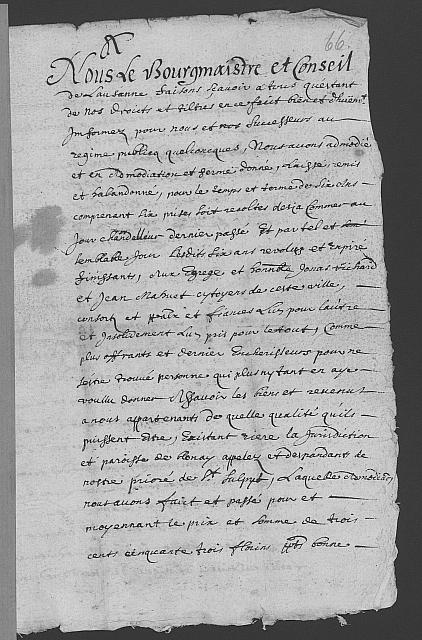 66.
Nous Le Bourgmaistre et Conseil
de Lausanne faisons scavoir a tous questant
de nos droicts et tiltres en ce faict bien et dheuemt
Informez pour nous et nos Successeurs au
regime publicq quelconcques, Nous avons admodié
et en admodiation et ferme donné, Laissé remis
et habandonné, pour le temps et terme de six ans
comprenant six prises soit recoltes desja Commencé au
Jour Chandelleur dernier passé Et par tel et
semblable Jour Lesdits six ans revolus et Expiré
finissants, Aux Egrege et honnble Jonas Richard
et Jean Manuet cytoyens de ceste ville,
consort et et francs L'un pour l'autre
et Insolidement L'un pris pour le tout, Comme
plus offrants et dernier Encherisseurs pour ne
sestre trouvé personne qui plus ny tant en aye
voullu donner Assavoir les biens et revenus
a nous appartenants de quelle qualité quils
puissent Estre, Existant riere la Jurisdiction
et paroisse de Lonay appelez et despandants de
nostre prioré de St Sulpys, Laquelle admodiaon
nous avons faict et passé pour et
moyennant le prix et somme de trois
cents cinquante trois florins bonne